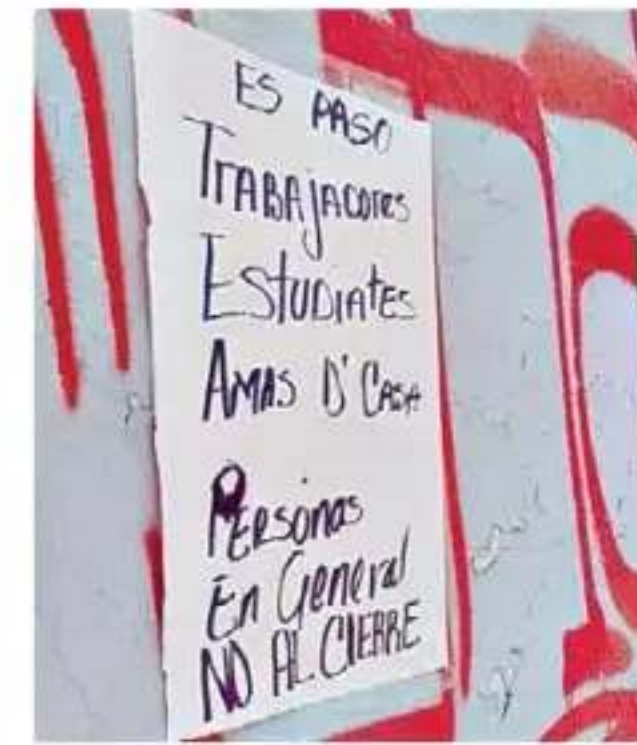 ES PASO
TRABAJADORES
ESTUDIATES
AMAS D' CASA
PERSONAS
En General
NO AL CIERRE